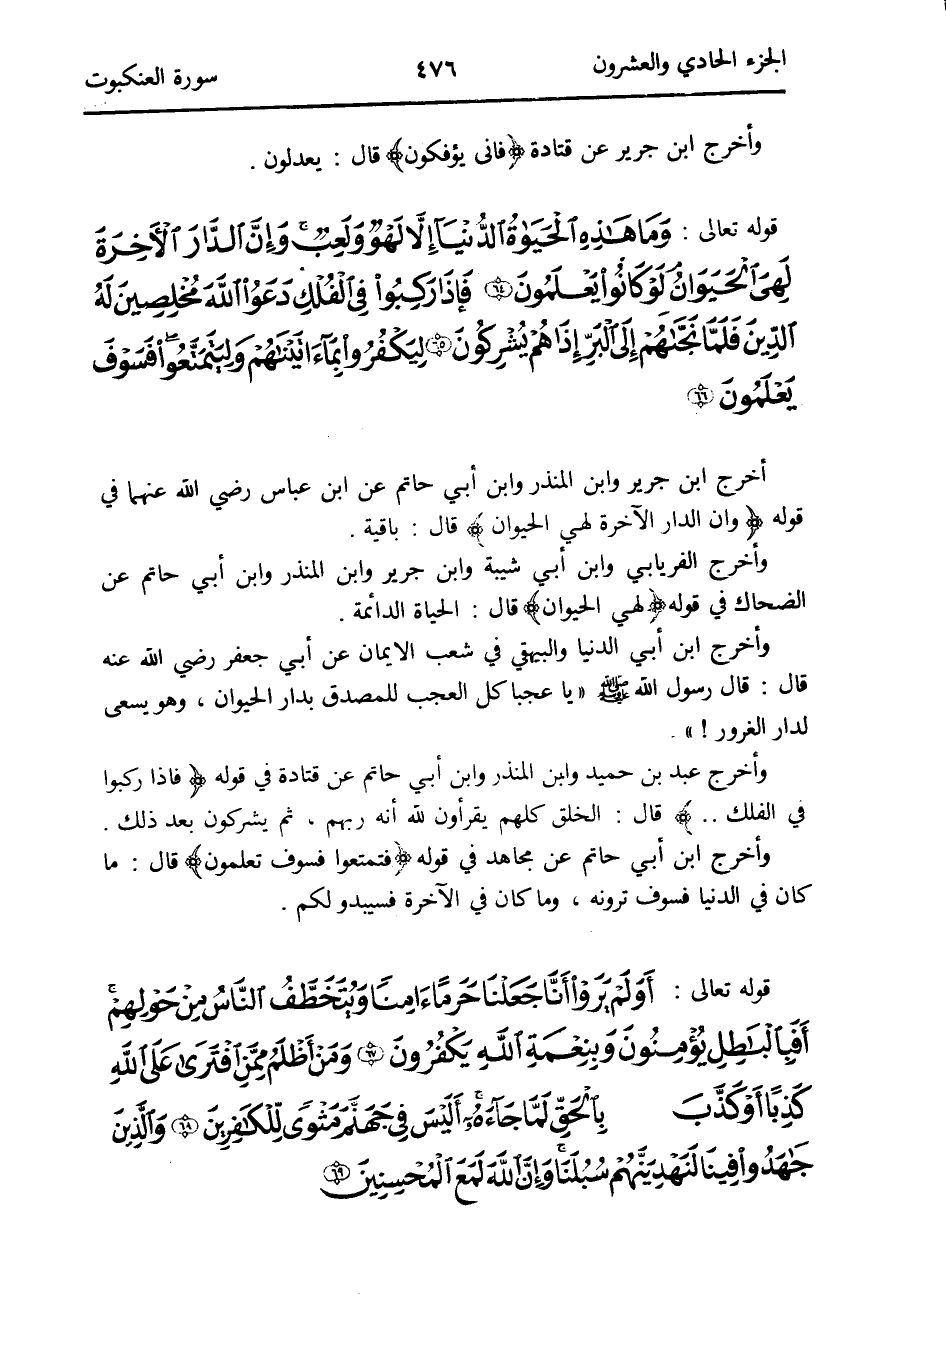 الجزء الحادي والعشرون ٤٧٦ سورة العنكبوت
وأخرج ابن جرير عن قتادة ﴿فانى يؤفكون﴾ قال : يعدلون .
قوله تعالى : وَمَا هَٰذِهِ ٱلْحَيَوٰةُ ٱلدُّنْيَآ إِلَّا لَهْوٌ وَلَعِبٌ ۚ وَإِنَّ ٱلدَّارَ ٱلْأَخِرَةَ
لَهِىَ ٱلْحَيَوَانُ لَوْ كَانُوا۟ يَعْلَمُونَ ﴿٦٤﴾ فَإِذَا رَكِبُوا۟ فِى ٱلْفُلْكِ دَعَوُا۟ ٱللَّهَ مُخْلِصِينَ لَهُ
ٱلدِّينَ فَلَمَّا نَجَّىٰهُمْ إِلَى ٱلْبَرِّ إِذَا هُمْ يُشْرِكُونَ ﴿٦٥﴾ لِيَكْفُرُوا۟ بِمَآ ءَاتَيْنَٰهُمْ وَلِيَتَمَتَّعُوا۟ ۖ فَسَوْفَ
يَعْلَمُونَ ﴿٦٦﴾
أخرج ابن جرير وابن المنذر وابن أبي حاتم عن ابن عباس رضي الله عنهما في
قوله ﴿ وان الدار الآخرة لهي الحيوان ﴾ قال : باقية .
وأخرج الفريابي وابن أبي شيبة وابن جرير وابن المنذر وابن أبي حاتم عن
الضحاك في قوله ﴿لهي الحيوان﴾ قال : الحياة الدائمة .
وأخرج ابن أبي الدنيا والبيهقي في شعب الايمان عن أبي جعفر رضي الله عنه
قال : قال رسول الله ﷺ « يا عجبا كل العجب للمصدق بدار الحيوان ، وهو يسعى
لدار الغرور ! » .
وأخرج عبد بن حميد وابن المنذر وابن أبي حاتم عن قتادة في قوله ﴿ فاذا ركبوا
في الفلك .. ﴾ قال : الخلق كلهم يقرأون لله أنه ربهم ، ثم يشركون بعد ذلك .
وأخرج ابن أبي حاتم عن مجاهد في قوله ﴿فتمتعوا فسوف تعلمون﴾ قال : ما
كان في الدنيا فسوف ترونه ، وما كان في الآخرة فسيبدو لكم .
قوله تعالى : أَوَلَمْ يَرَوْا۟ أَنَّا جَعَلْنَا حَرَمًا ءَامِنًا وَيُتَخَطَّفُ ٱلنَّاسُ مِنْ حَوْلِهِمْ ۚ
أَفَبِٱلْبَٰطِلِ يُؤْمِنُونَ وَبِنِعْمَةِ ٱللَّهِ يَكْفُرُونَ ﴿٦٧﴾ وَمَنْ أَظْلَمُ مِمَّنِ ٱفْتَرَىٰ عَلَى ٱللَّهِ
كَذِبًا أَوْ كَذَّبَ بِٱلْحَقِّ لَمَّا جَآءَهُۥٓ ۚ أَلَيْسَ فِى جَهَنَّمَ مَثْوًى لِّلْكَٰفِرِينَ ﴿٦٨﴾ وَٱلَّذِينَ
جَٰهَدُوا۟ فِينَا لَنَهْدِيَنَّهُمْ سُبُلَنَا ۚ وَإِنَّ ٱللَّهَ لَمَعَ ٱلْمُحْسِنِينَ ﴿٦٩﴾